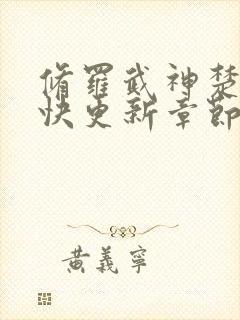 脩羅武神楚
快更新章節
黃義寧